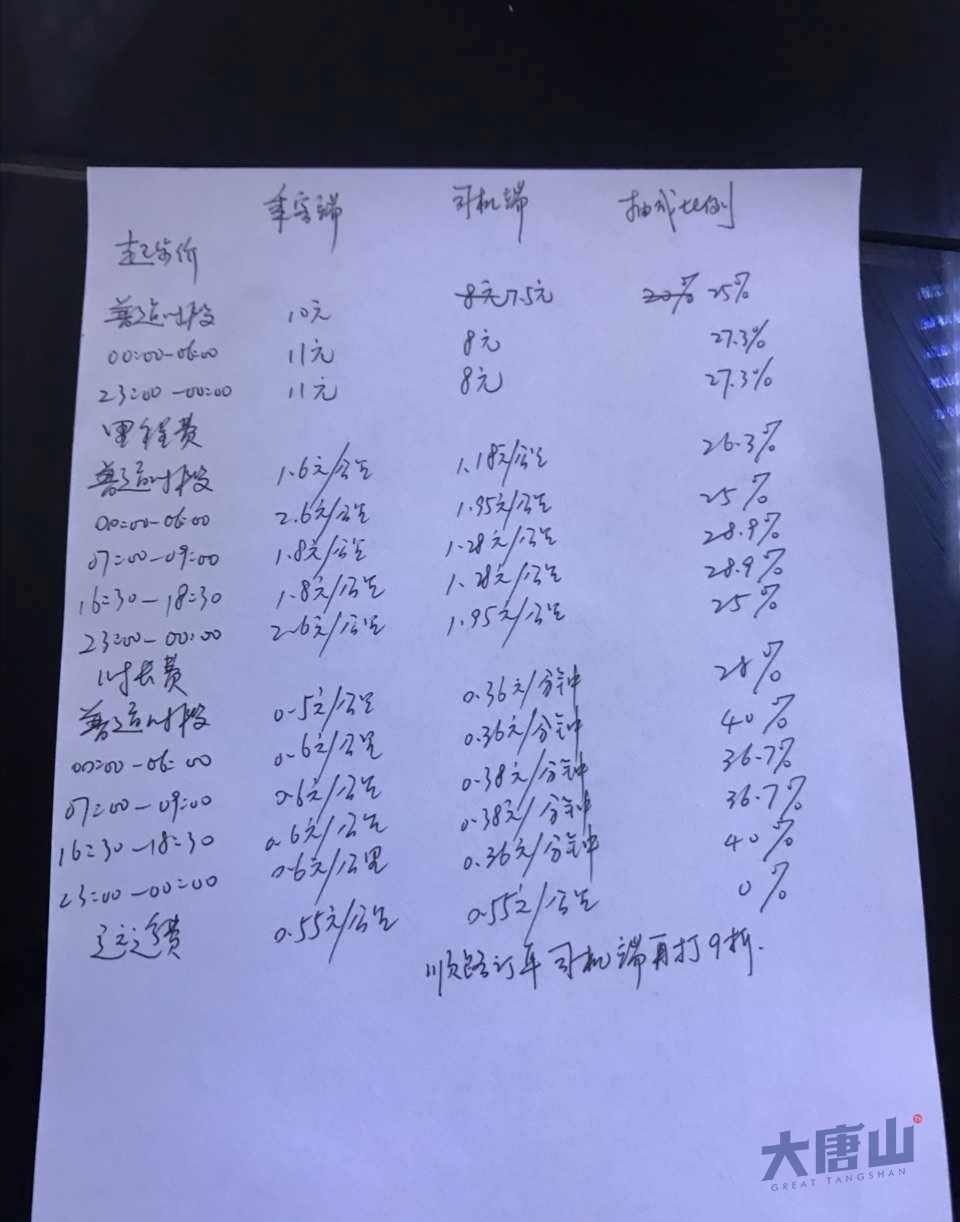 乘客端 司机端 抽成比例
起步价
普通时段 10元 8元 7.5元 20% 25%
00:00-06:00 11元 8元 27.3%
23:00-00:00 11元 8元 27.3%
里程费
普通时段 1.6元/公里 1.18元/公里 26.3%
00:00-06:00 2.6元/公里 1.95元/公里 25%
07:00-09:00 1.8元/公里 1.28元/公里 28.9%
16:30-18:30 1.8元/公里 1.28元/公里 28.9%
23:00-00:00 2.6元/公里 1.95元/公里 25%
时长费
普通时段 0.5元/公里 0.36元/分钟 28%
00:00-06:00 0.6元/公里 0.36元/分钟 40%
07:00-09:00 0.6元/公里 0.38元/分钟 36.7%
16:30-18:30 0.6元/公里 0.38元/分钟 36.7%
23:00-00:00 0.6元/公里 0.36元/分钟 40%
远途费 0.55元/公里 0.55元/公里 0%
顺路订车司机端再打9折.
大唐山
GREAT TANGSHAN